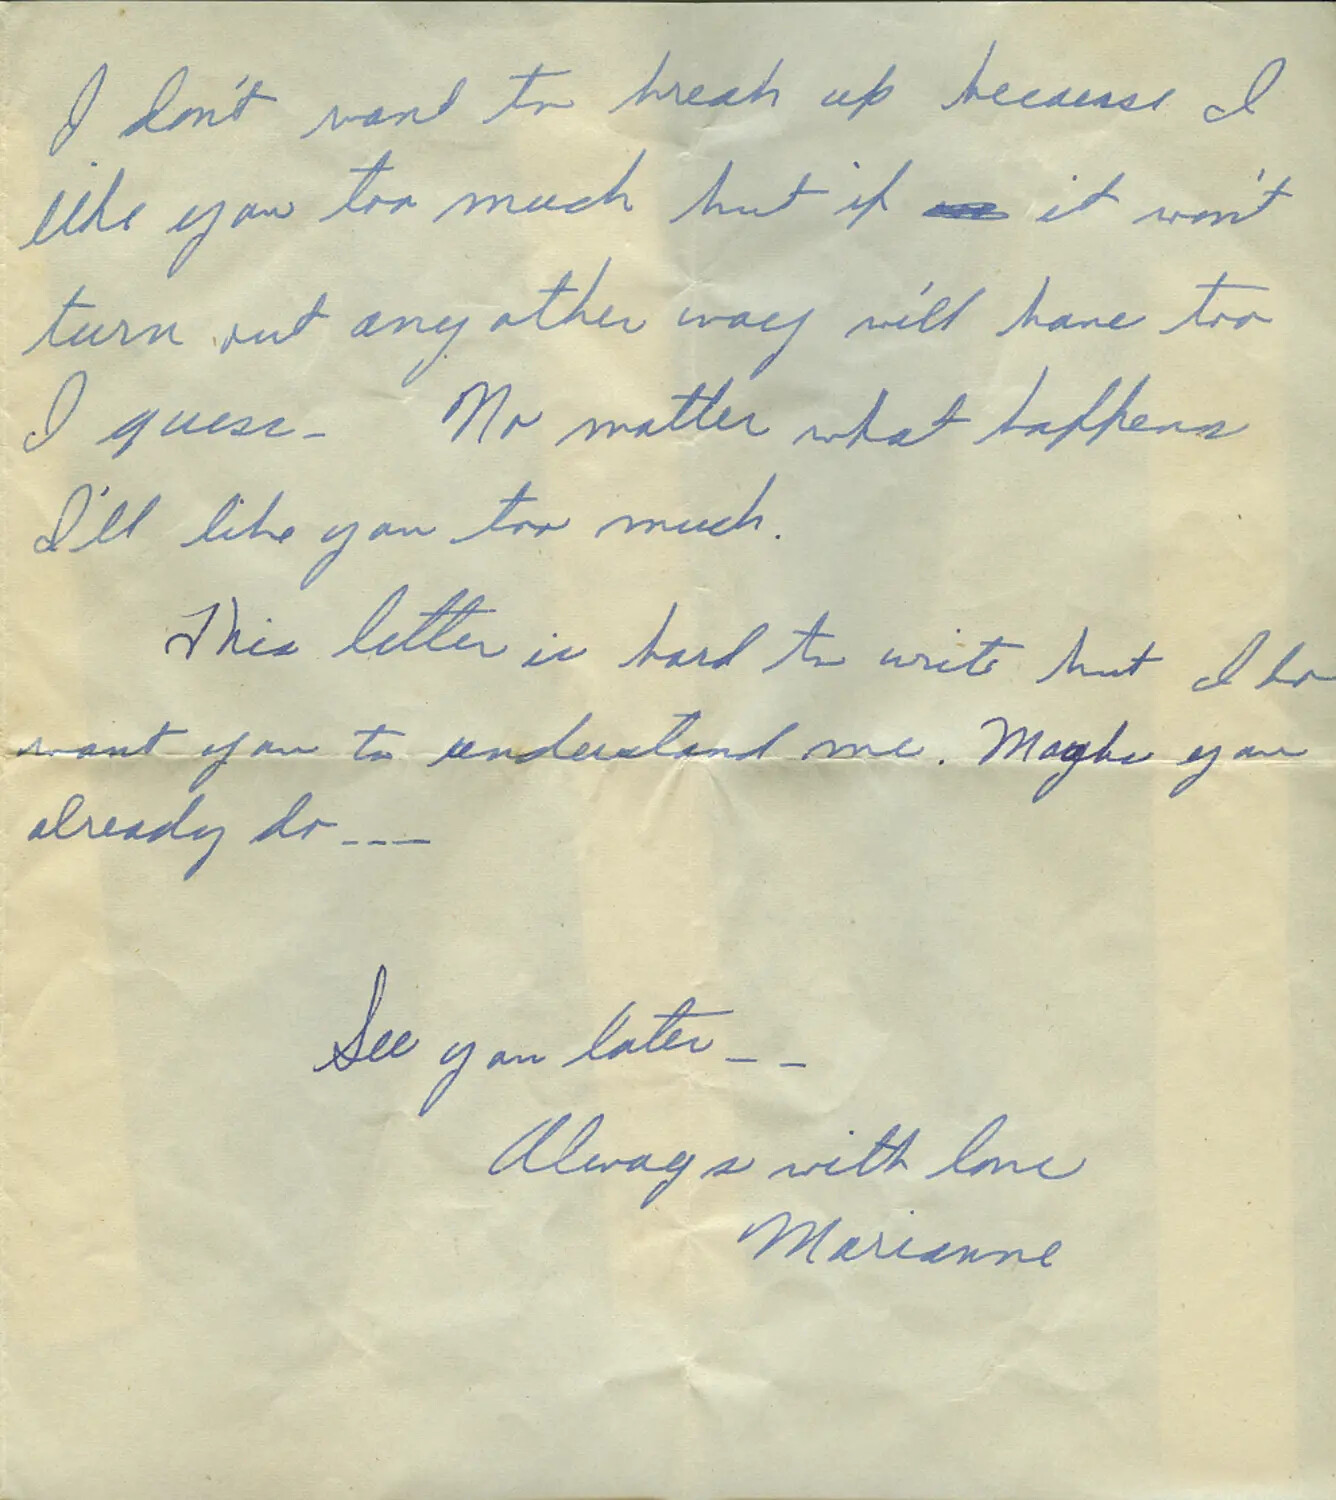 I don't want to break up because I
like you too much but if it won't
turn out any other way we'll have too
I guess-
No matter what happens
I'll like you too much.
This letter is hard to write but I do
want you to understand me. Maybe you
already do ---
See you later --
Always with love
Marianne